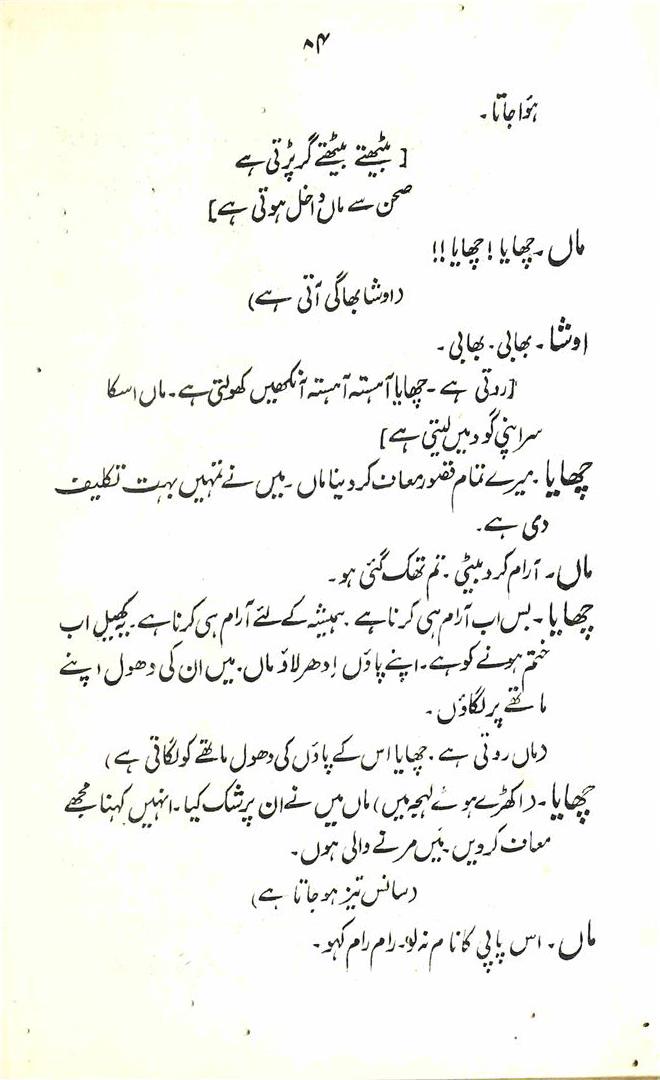 ۸۴
ہوا جاتا۔
[ بیٹھتے بیٹھتے گر پڑتی ہے
صحن سے ماں داخل ہوتی ہے]
ماں ۔ چھایا ! چھایا !!
(اوشا بھاگی آتی ہے)
اوشا ۔ بھابی ۔ بھابی ۔
[روتی ہے ۔ چھایا آہستہ آہستہ آنکھیں کھولتی ہے ۔ ماں اسکا
سر اپنی گود میں لیتی ہے]
چھایا ۔ میرے تمام قصور معاف کر دینا ماں ۔ میں نے تمہیں بہت تکلیف
دی ہے ۔
ماں ۔ آرام کرو بیٹی ۔ تم تھک گئی ہو ۔
چھایا ۔ بس اب آرام ہی کرنا ہے ۔ ہمیشہ کے لئے آرام ہی کرنا ہے ۔ یہ کھیل اب
ختم ہونے کو ہے ۔ اپنے پاؤں اِدھر لاؤ ماں ۔ میں ان کی دھول اپنے
ماتھے پر لگاؤں ۔
(ماں روتی ہے ۔ چھایا اس کے پاؤں کی دھول ماتھے کو لگاتی ہے)
چھایا ۔ (اکھڑے ہوئے لہجہ میں) ماں میں نے ان پر شک کیا ۔ انہیں کہنا مجھے
معاف کر دیں ۔ میں مرنے والی ہوں ۔
(سانس تیز ہو جاتا ہے)
ماں ۔ اس پاپی کا نام نہ لو ۔ رام رام کہو ۔